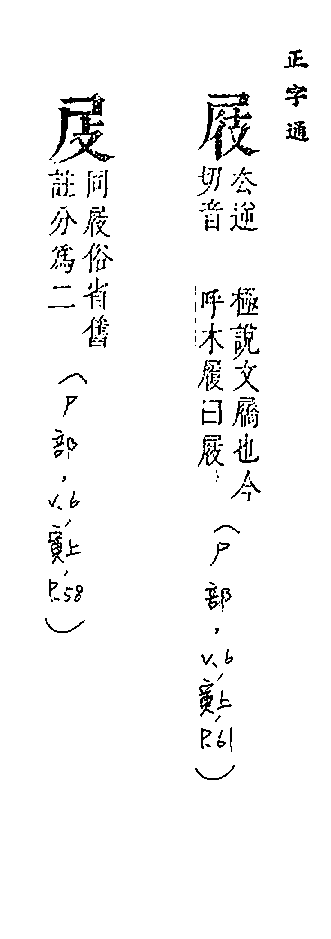 正字通
屐
仌逆
切音
極說文屩也今
呼木履曰屐
(尸部,v.6,寅上,P.61)
𡱝
同屐俗省舊
註分爲二
(尸部,v.6,寅上,P.58)